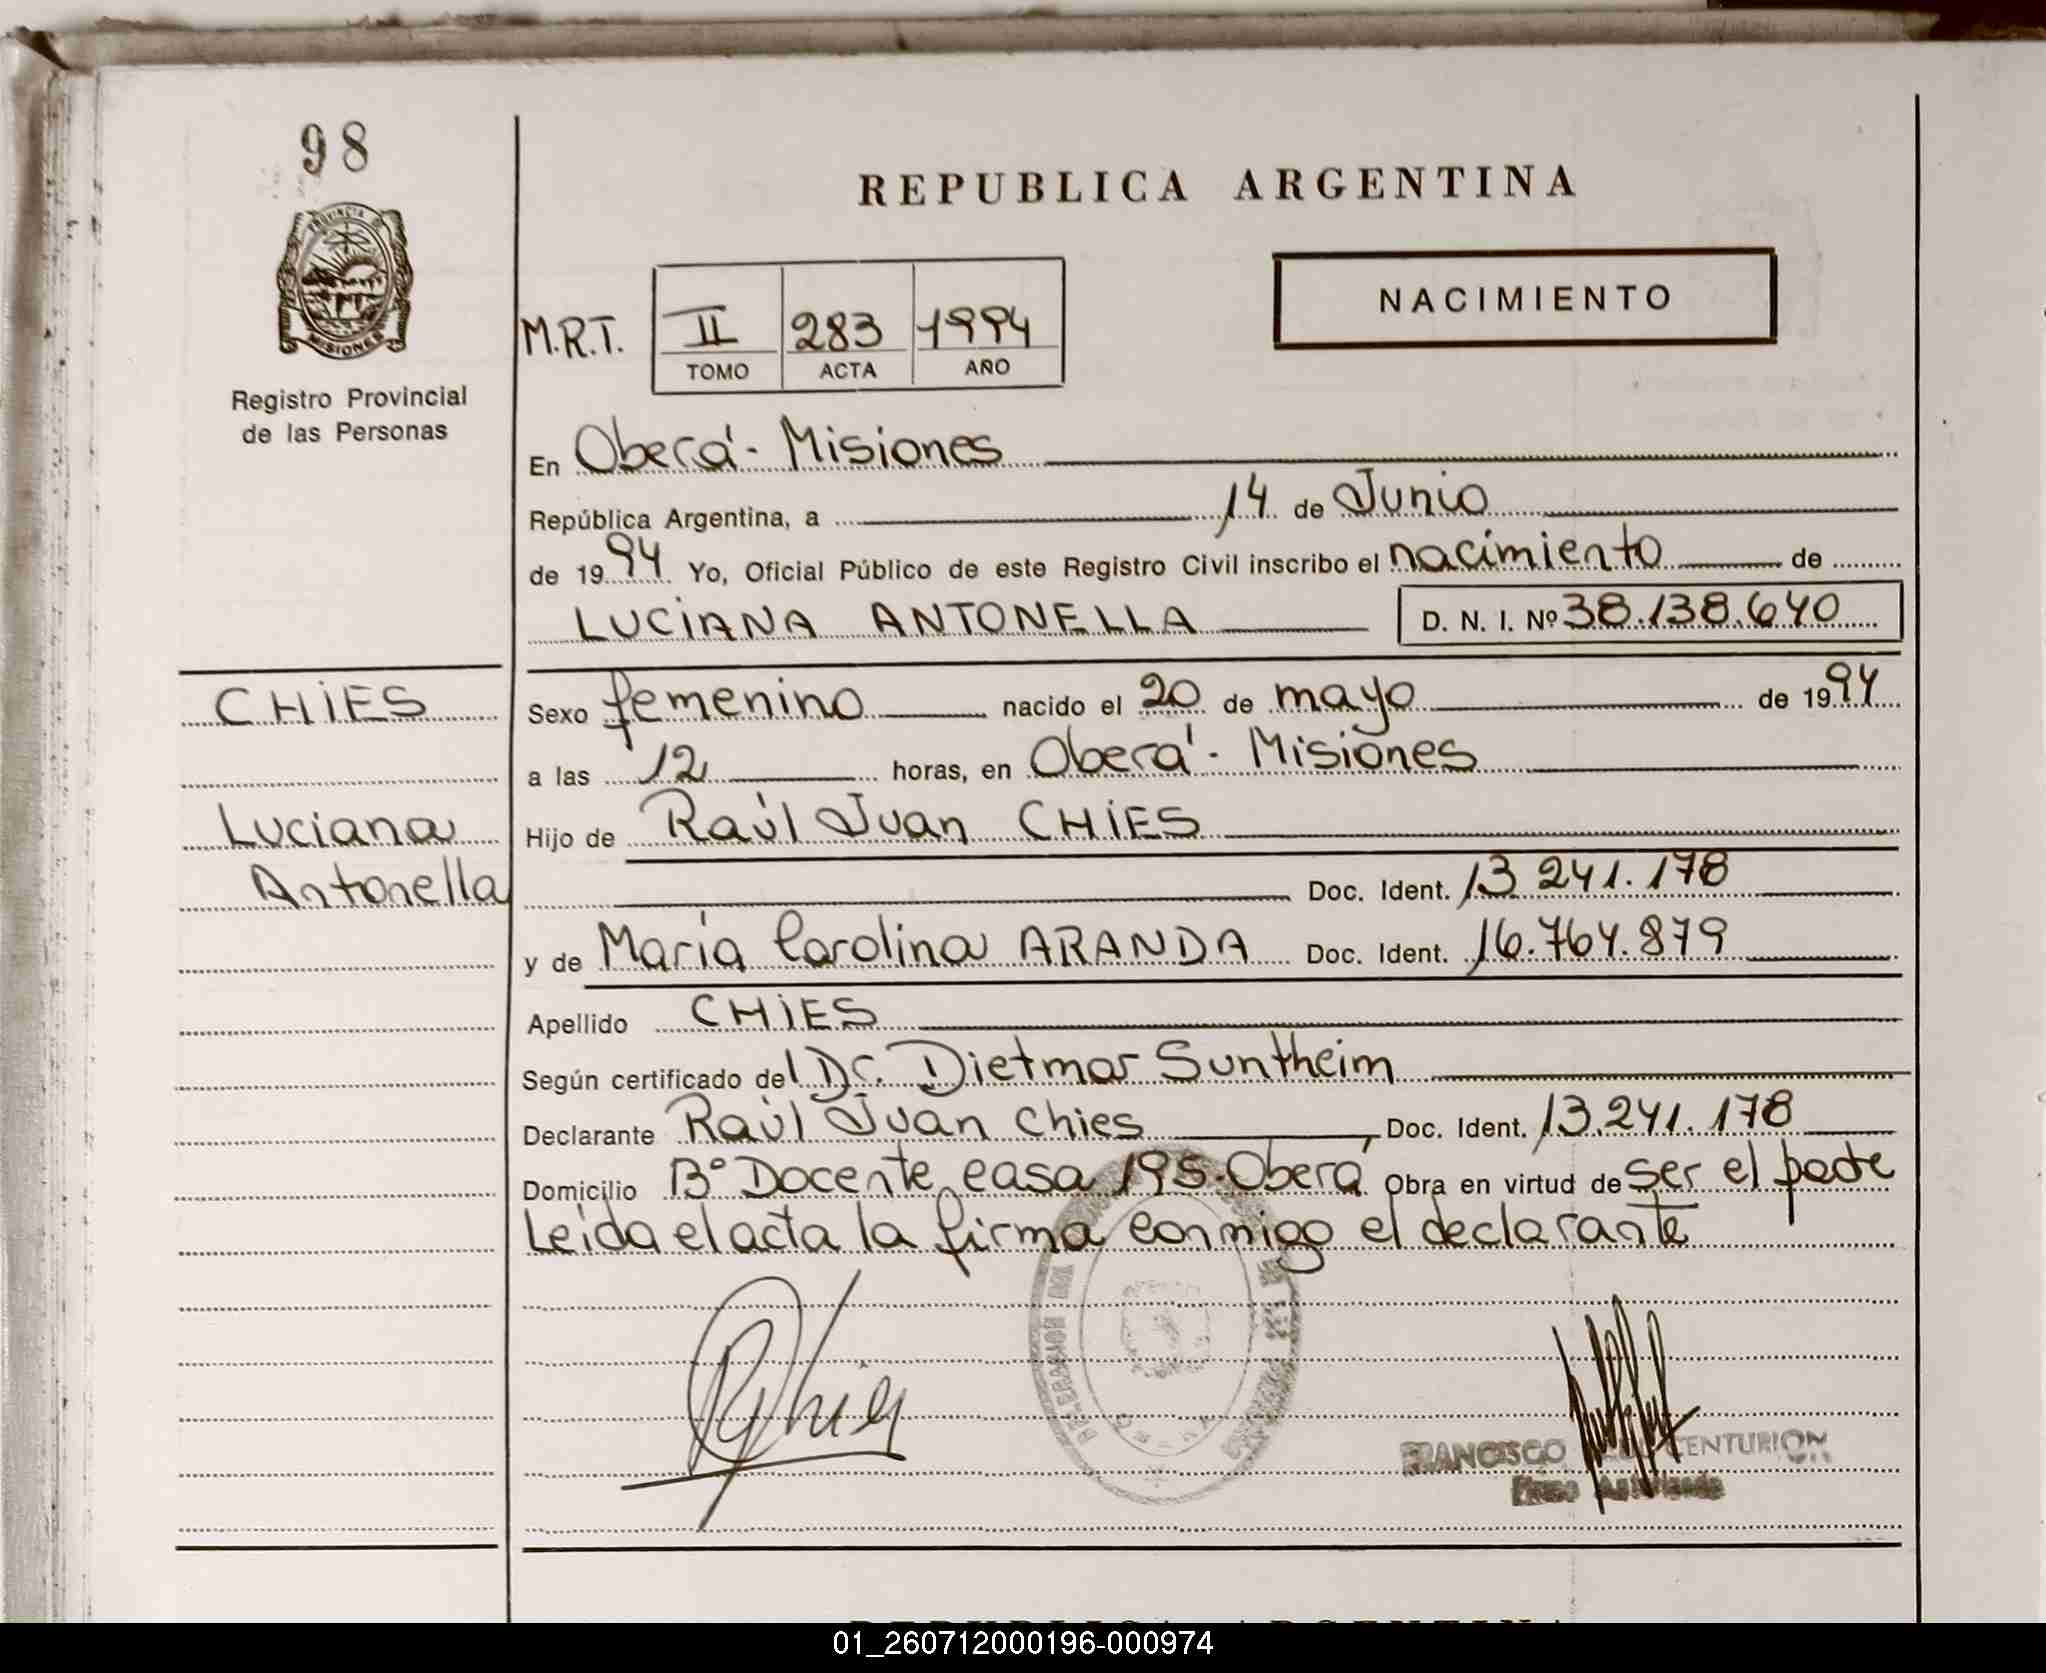 98
PROVINCIA DE
MISIONES
Registro Provincial
de las Personas
REPUBLICA ARGENTINA
NACIMIENTO
M.R.T. II 283 1994
TOMO ACTA AÑO
En Oberá - Misiones
República Argentina, a 14 de Junio
de 1994 Yo, Oficial Público de este Registro Civil inscribo el nacimiento de
LUCIANA ANTONELLA D. N. I. Nº 38.138.640
CHIES
Luciana
Antonella
Sexo femenino nacido el 20 de mayo de 1994
a las 12 horas, en Oberá - Misiones
Hijo de Raúl Juan CHIES
Doc. Ident. 13.241.178
y de María Carolina ARANDA Doc. Ident. 16.764.879
Apellido CHIES
Según certificado del Dr. Dietmar Suntheim
Declarante Raúl Juan Chies, Doc. Ident. 13.241.178
Domicilio Bº Docente casa 195. Oberá Obra en virtud de ser el padre
Leída el acta la firma conmigo el declarante
FRANCISCO CENTURION
REPUBLICA ARGENTINA
01_260712000196-000974